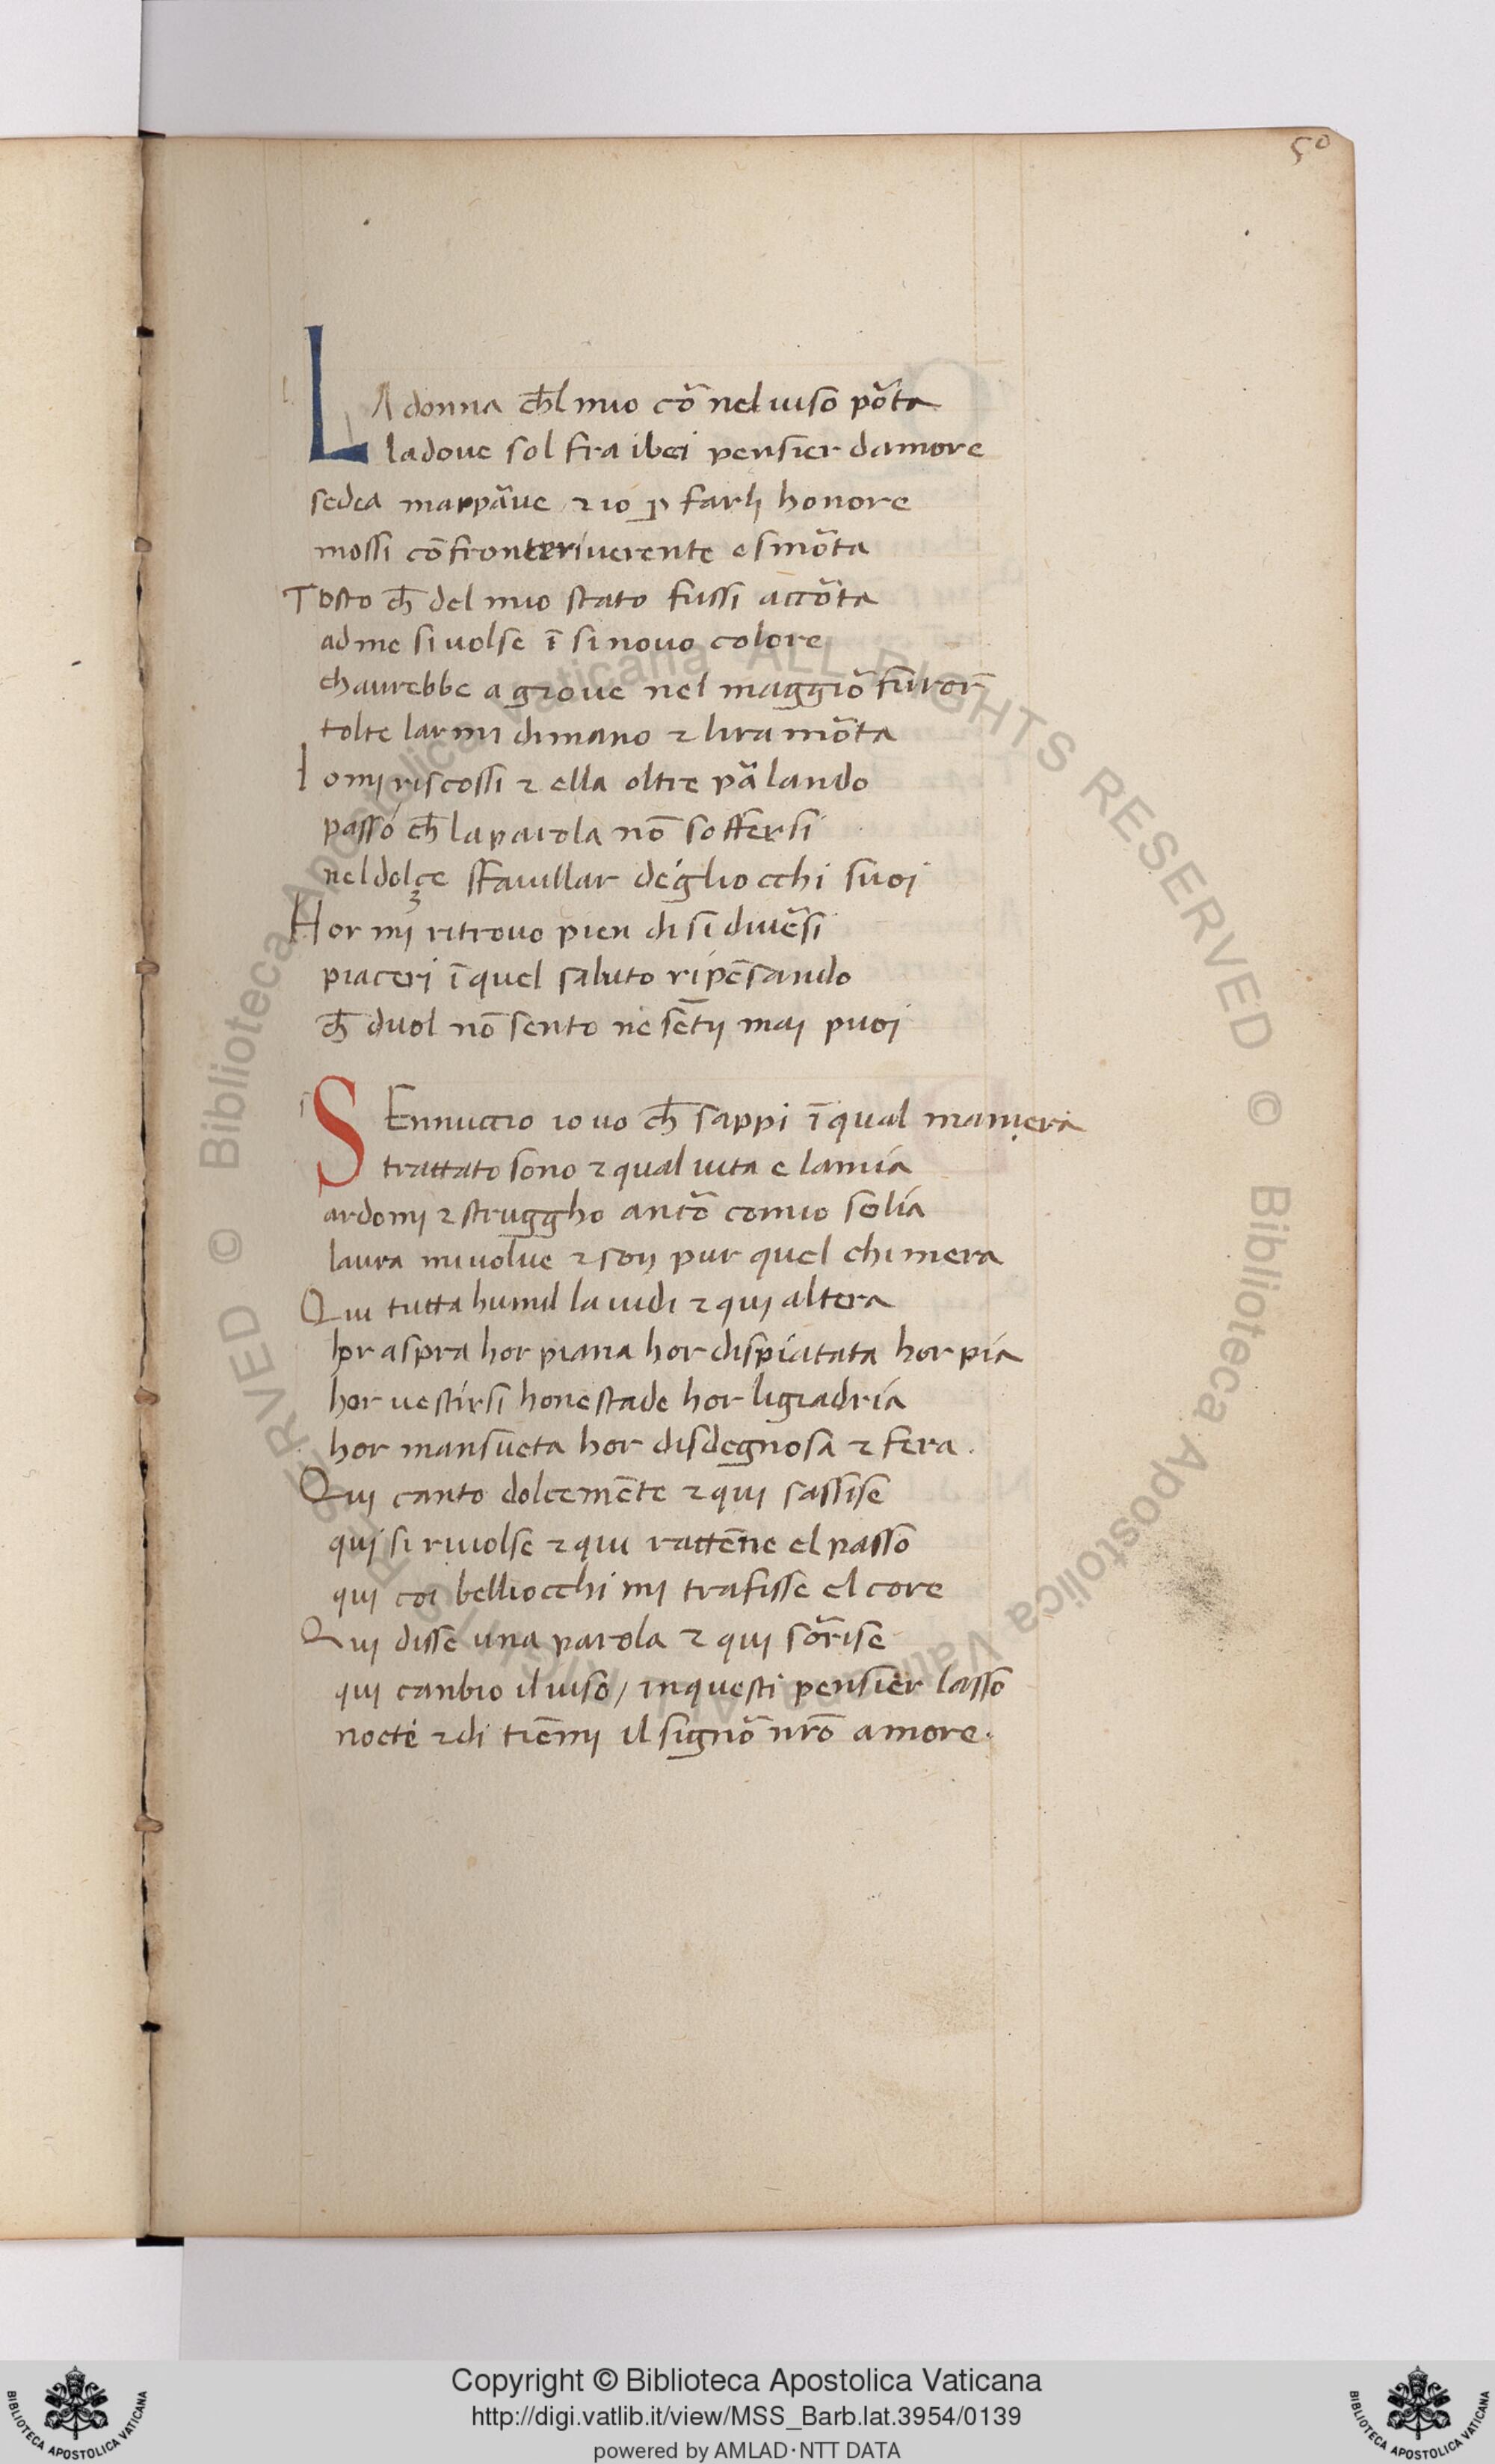 50
LA donna ch̄l mio cor̄ nel uiso por̄ta
ladoue sol fra ibei pensier damore
sedea mapparūe ꝛ io ꝑ farli honore
mossi cōfronteriuerente e smor̄ta
Tosto ch̄ del mio stato fussi accor̄ta
ad me si uolse ī si nouo colore
chaurebbe a gioue nel maggior̄ furor̄
tolte larmi dimano ꝛ lira mor̄ta
Iomi riscossi ꝛ ella oltre par̄lando
passo ch̄ la parola nō soffersi
nel dolçe sfauillar degliocchi suoi
Hor mi ritrouo pien di si diuer̄si
piaceri ī quel saluto ripēsando
ch̄ duol nō sento ne sētij mai puoi
SEnnuccio io uo ch̄ sappi ī qual maniera
trattato sono ꝛ qual uita e lamia
ardomi ꝛ struggho ancor̄ comio solia
laura miuolue ꝛ son pur quel chimera
Qui tutta humil la uidi ꝛ qui altera
hor aspra hor piana hor dispiatata hor pia
hor uestirsi honestade hor ligiadria
hor mansueta hor disdegnosa ꝛ fera.
Qui canto dolcemēte ꝛ qui sassise
qui si riuolse ꝛ qui rattēne el passo
qui coi belliocchi mi trafisse el core
Qui disse una parola ꝛ qui sor̄rise
qui canbio il uiso / inquesti pensier lasso
nocte ꝛ di tiēmi il signor̄ nr̄o amore.
© Biblioteca Apostolica Vaticana ALL RIGHTS RESERVED © Biblioteca Apostolica Vaticana ALL RIGHTS RESERVED
Copyright © Biblioteca Apostolica Vaticana
http://digi.vatlib.it/view/MSS_Barb.lat.3954/0139
powered by AMLAD·NTT DATA
BIBLIOTECA APOSTOLICA VATICANA
BIBLIOTECA APOSTOLICA VATICANA